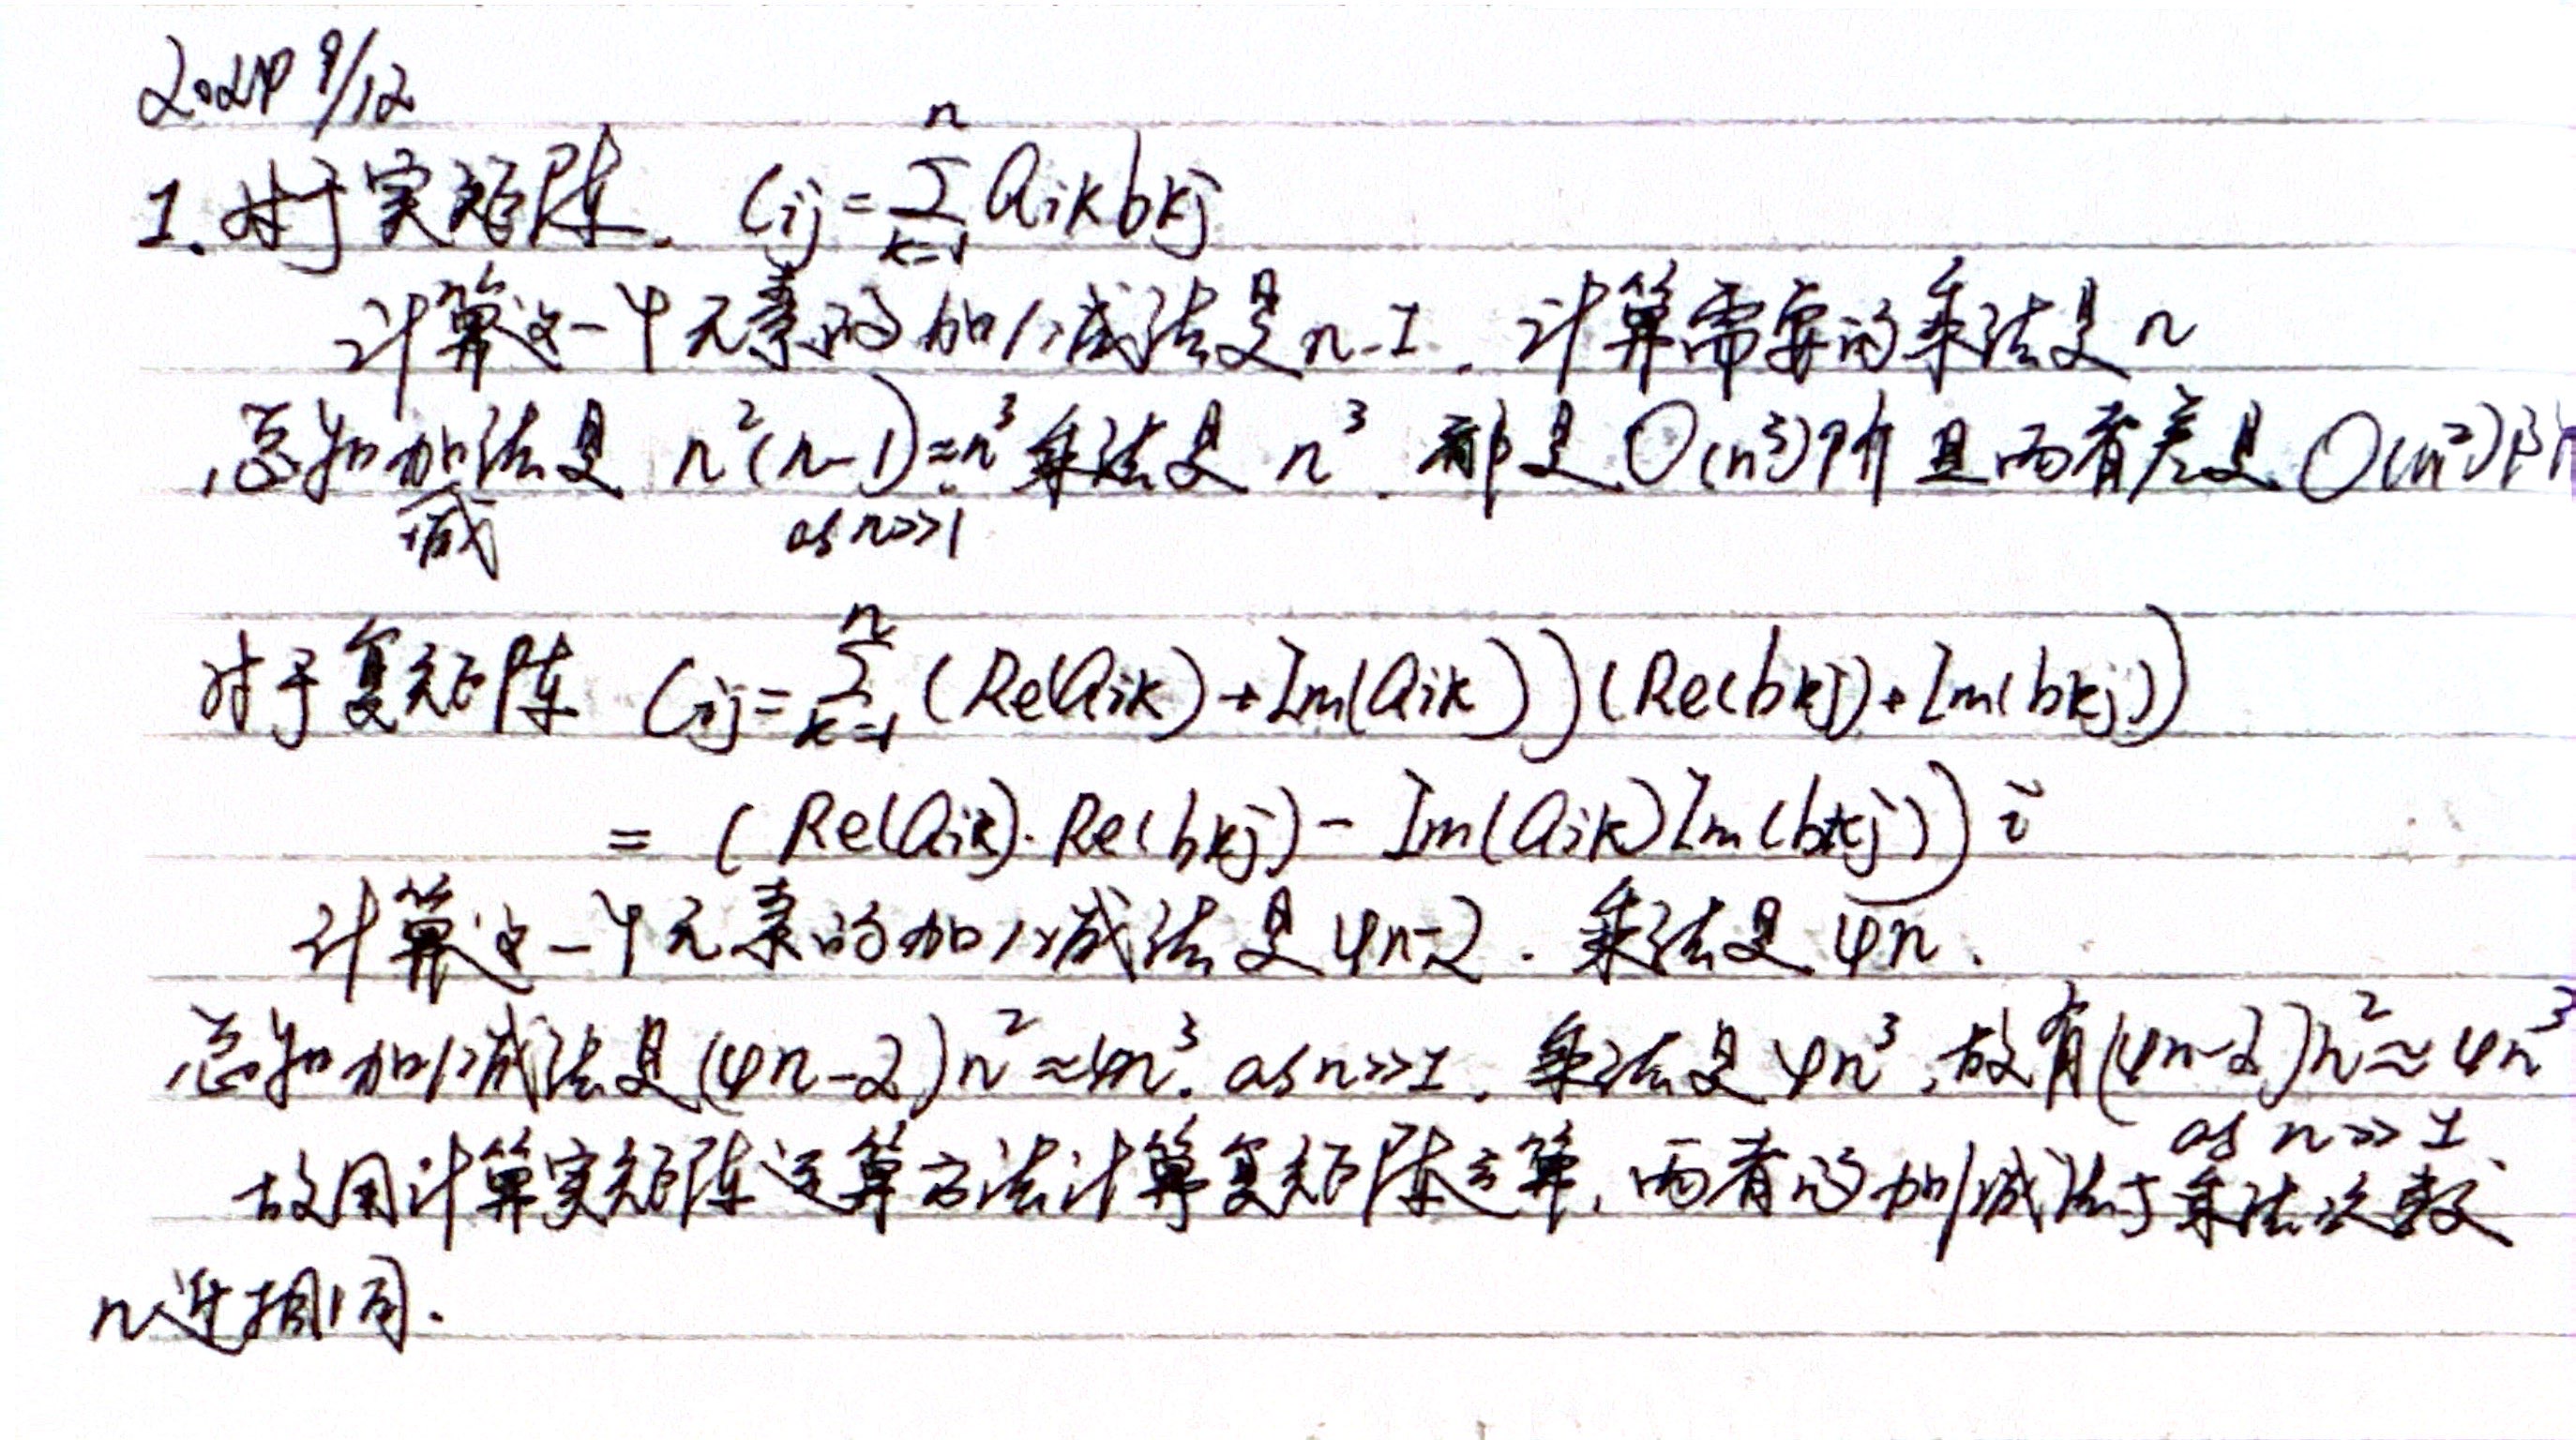 2024 9/12
1. 对于实矩阵. Cij=∑_{k=1}^{n} aikbkj
计算这一个元素的加/减法是n-1. 计算需要的乘法是n
总加减法是 n²(n-1)≈n³ as n>>1 乘法是 n³. 都是O(n³)阶且两者差是O(n²)阶
对于复矩阵 Cij=∑_{k=1}^{n} (Re(aik)+Im(aik))(Re(bkj)+Im(bkj))
= (Re(aik)·Re(bkj)-Im(aik)Im(bkj))i
计算这一个元素的加/减法是4n-2. 乘法是4n.
加/减法是(4n-2)n²≈4n³. as n>>1. 乘法是4n³,故有(4n-2)n²≈4n³ as n>>1
故用计算实矩阵运算方法计算复矩阵运算,两者的加/减法于乘法次数
近相同.